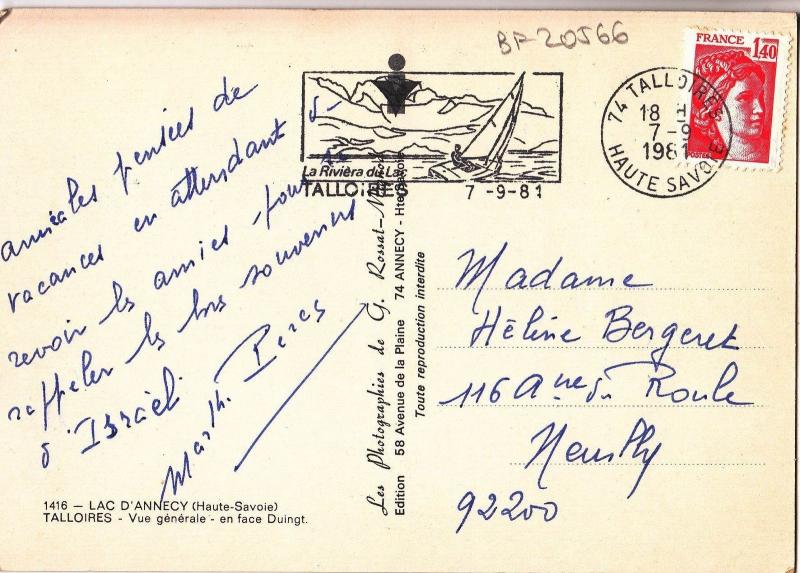 BF-20566
FRANCE
1,40
POSTES
74 TALLOIRES
18 H
7-9
1981
HAUTE SAVOIE
La Rivièra du Lac
TALLOIRES
7 -9-81
amicales pensées de
vacances en attendant de
revoir les amies pour se
rappeler les bons souvenirs
d'Israël.
Marth. Peres
Les Photographies de G. Rossat-
Edition 58 Avenue de la Plaine 74 ANNECY - Hte-Savoie
Toute reproduction interdite
Madame
Hélène Bergeret
116 Ave du Roule
Neuilly
92200
1416 — LAC D'ANNECY (Haute-Savoie)
TALLOIRES - Vue générale - en face Duingt.